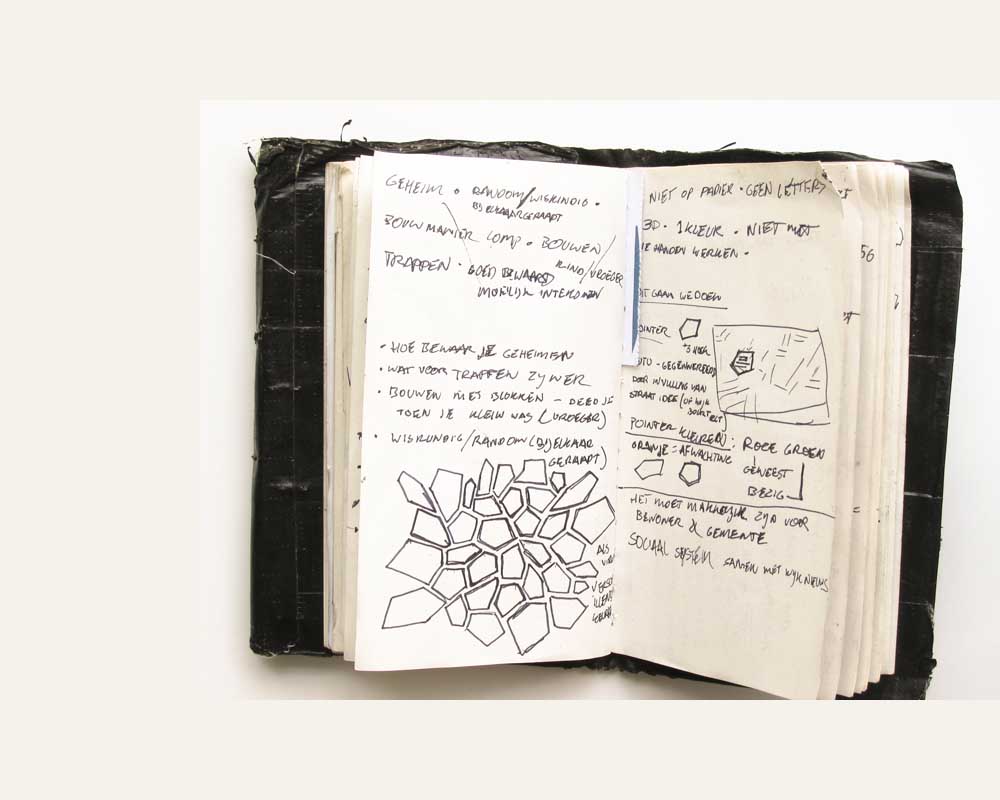 GEHEIM • RANDOM/WISKUNDIG •
BIJELKAARGERAAPT
BOUWMANIER LOMP • BOUWEN/
KIND/VROEGER
TRAPPEN • GOED BEWAARD
MOEILIJK INTEKOMEN
• HOE BEWAAR JE GEHEIMEN
• WAT VOOR TRAPPEN ZYN ER
• BOUWEN MET BLOKKEN – DEED JE
TOEN JE KLEIN WAS (VROEGER)
• WISKUNDIG/RANDOM (BIJELKAAR
GERAAPT)
ALS
NIET OP PAPIER • GEEN LETTERS
3D • 1 KLEUR • NIET MET
JE HANDEN WERKEN •
56
DIT GAAN WE DOEN
POINTER
+5 HOEK
DOOR INVULLING VAN
STRAAT IDEE (OF WIJK
BUURT
POINTER KLEUREN: ROZE GROEN
ORANJE = AFWACHTING
GEWEEST
BEZIG
HET MOET MAKKELIJK ZIJN VOOR
BEWONER & GEMEENTE
SOCIAAL SYSTEEM SAMEN MET WIJKNIEUWS